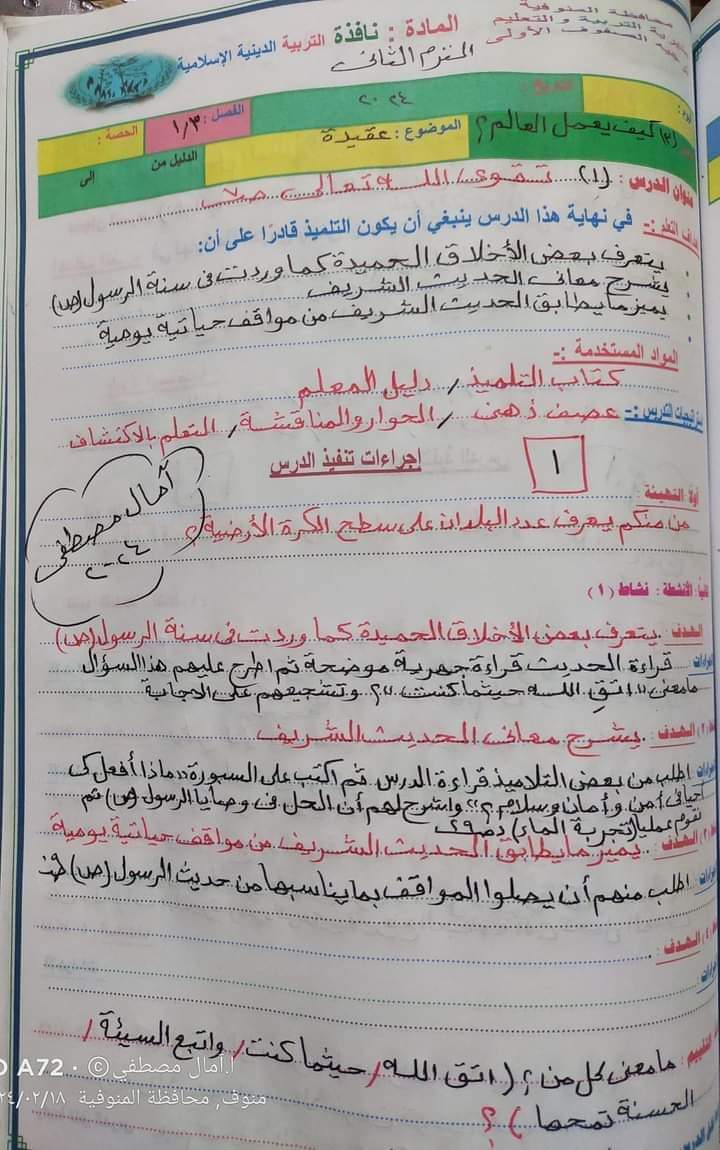 محافظة المنوفية
مديرية التربية والتعليم
الصفوف الأولى
المادة : نافذة التربية الدينية الإسلامية
المنهزم الثاني
٢٠٢٤
(٣) كيف يعمل العالم؟
الموضوع : عقيدة
الفصل : ١/٣
الحصة :
الدليل من
إلى
عنوان الدرس : (١) تقوى الله تعالى ص٧
أهداف التعلم :- في نهاية هذا الدرس ينبغي أن يكون التلميذ قادرًا على أن:
يتعرف بعض الأخلاق الحميدة كما وردت فى سنة الرسول (ص)
يشرح معانى الحديث الشريف
يميز ما يطابق الحديث الشريف من مواقف حياتية يومية
المواد المستخدمة :-
كتاب التلميذ / دليل المعلم
استراتيجيات التدريس :- عصف ذهنى / الحوار والمناقشة / التعلم بالاكتشاف
١
إجراءات تنفيذ الدرس
أمال مصطفى
٢٠٢٤
أولا التهيئة :
من منكم يعرف عدد البلدان على سطح الكرة الأرضية؟
ثانيا : الأنشطة : نشاط (١)
الهدف : يتعرف بعض الأخلاق الحميدة كما وردت فى سنة الرسول (ص)
قراءة الحديث قراءة جهرية موضحة ثم اطرح عليهم هذا السؤال
ما معنى "اتق الله حيثما كنت"؟ وتشجيعهم على الاجابة
(٢) الهدف : يشرح معانى الحديث الشريف
اطلب من بعض التلاميذ قراءة الدرس ثم اكتب على السبورة "ماذا أفعل كى
أحيا فى أمن وأمان وسلام؟" واشرح لهم أن الحل فى وصايا الرسول (ص) ثم
نقوم عمليا (تجربة الماء) ص٢٩
(٣) الهدف : يميز ما يطابق الحديث الشريف من مواقف حياتية يومية
اطلب منهم أن يصلوا المواقف بما يناسبها من حديث الرسول (ص)
(٤) الهدف :
التقييم : ما معنى كل من ؟ (اتق الله / حيثما كنت / واتبع السيئة /
الحسنة تمحها) ؟
A72 · © أ.أمال مصطفي
منوف, محافظة المنوفية ٢٤/٠٢/١٨